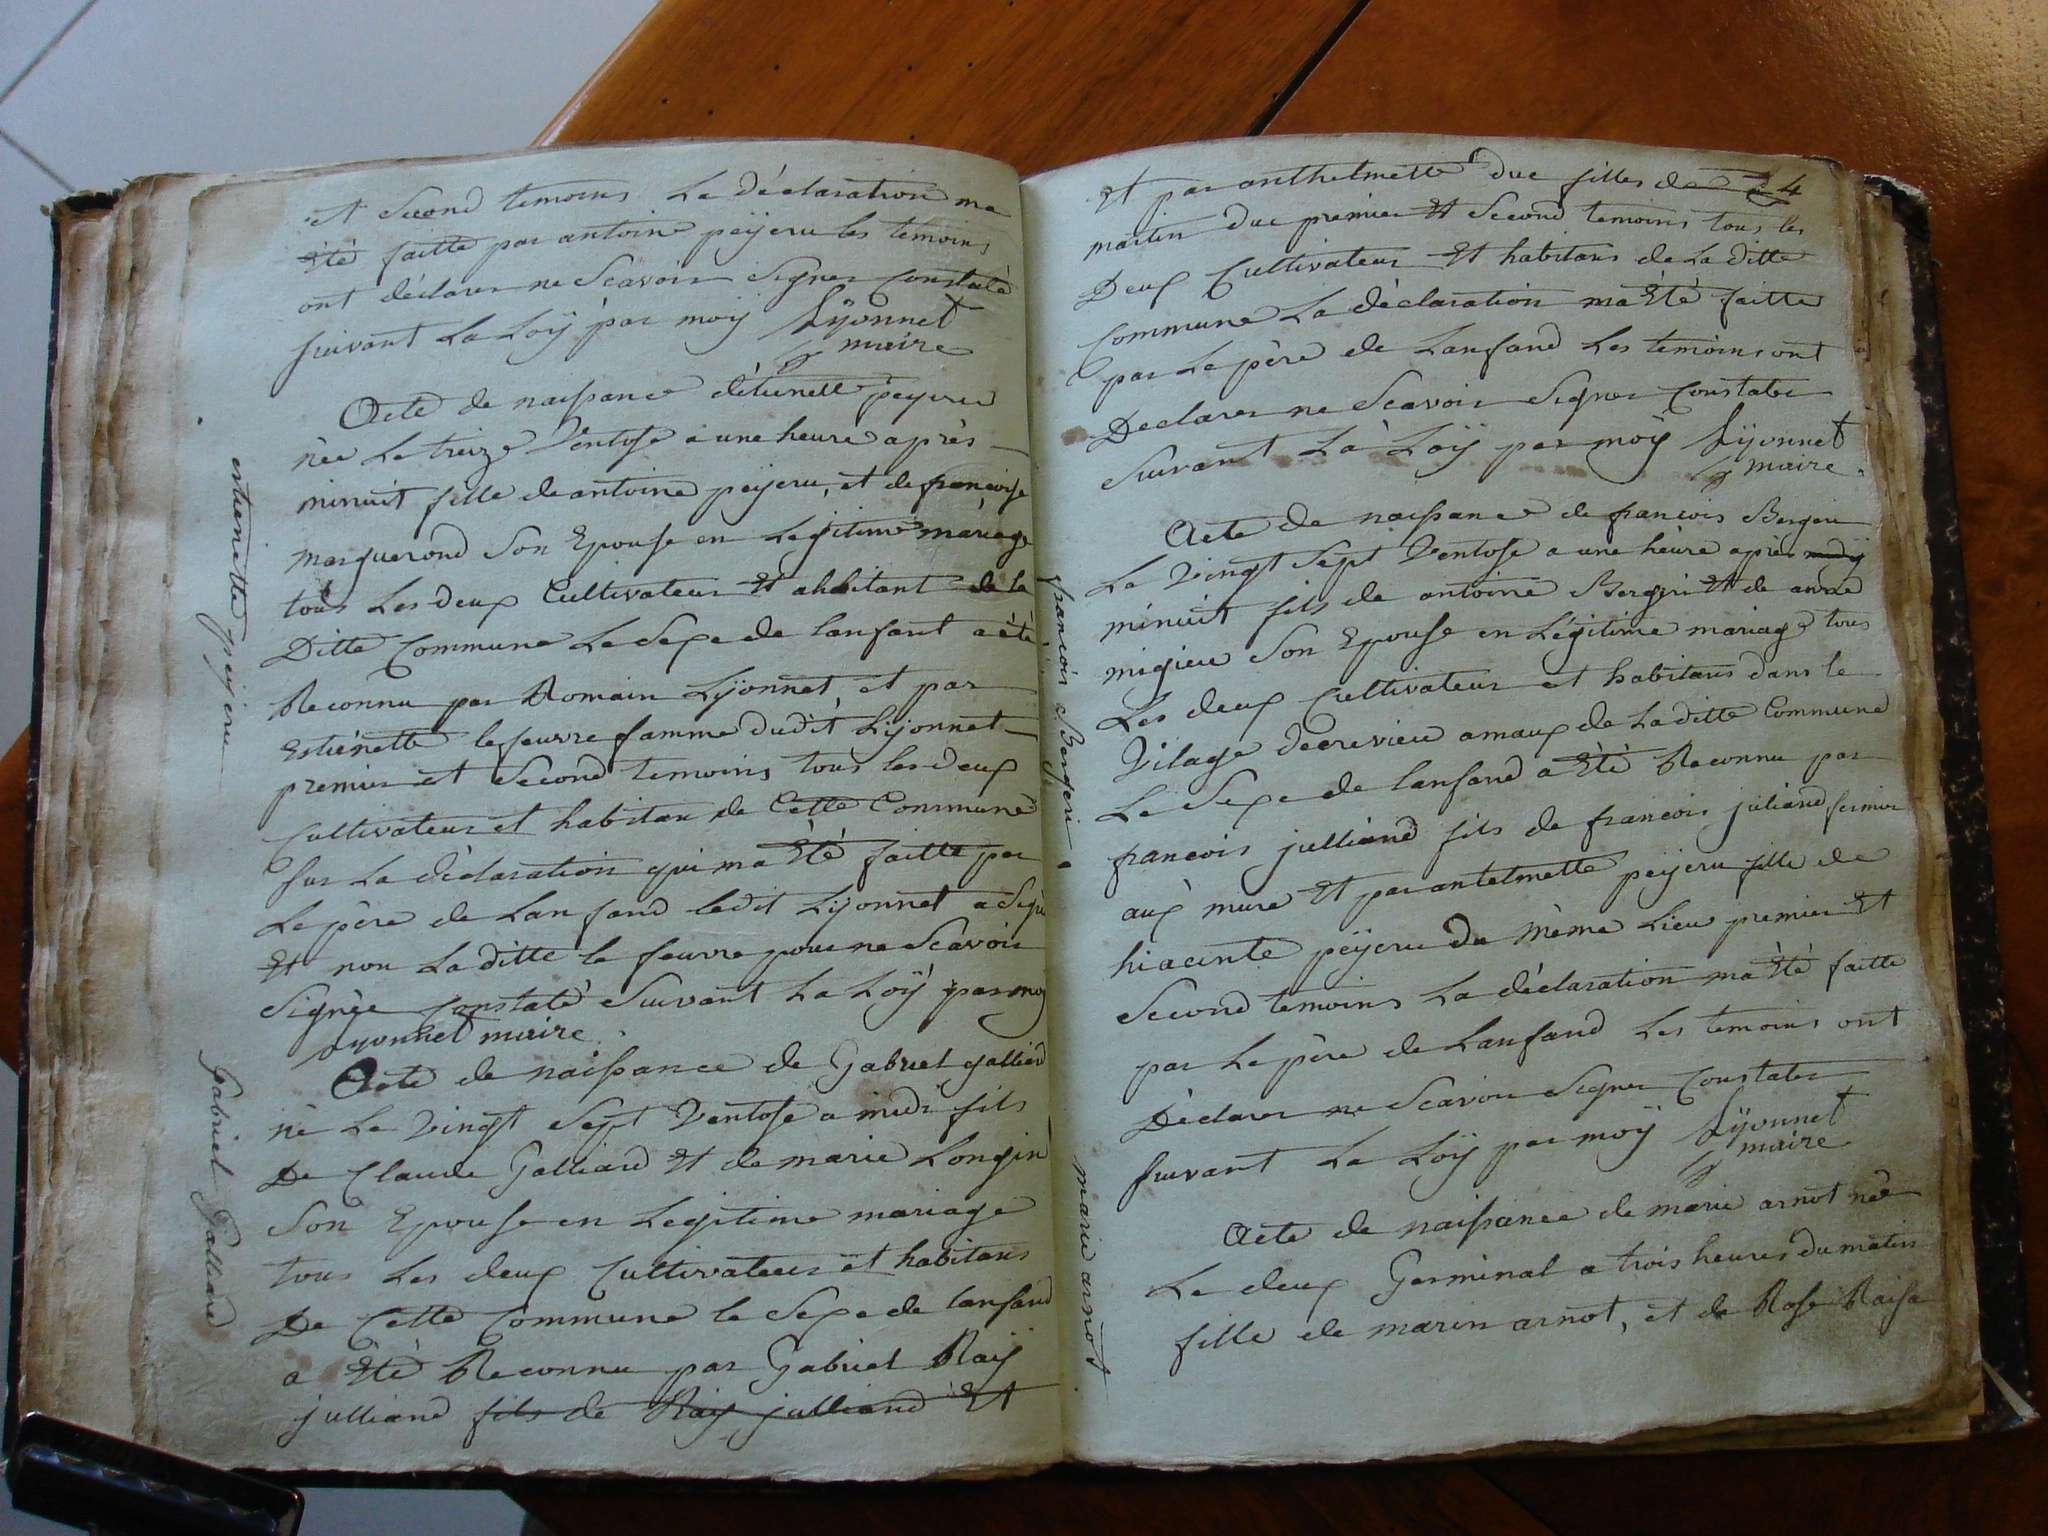 et Second temoins La déclaration ma
été faitte par antoine peyeru les temoins
ont déclarer ne Scavoir Signer Constaté
suivant La Loÿ par moÿ Lÿonnet
maire
Acte de naissance détienette peyeru
née Le treize Ventose a une heure après
minuit fille de antoine peyeru, et de françoise
marguerond Son Epouse en Legitime mariage
tous Les deux Cultivateur Et ahbitant de la
Ditte Commune Le Sexe de lanfant a été
Reconnu par Romain Lÿonnet et par
Estiénette lefeuvre famme dudit Lÿonnet
premier et Second temoins tous les deux
Cultivateur et habitan de Cette Commune
sur La déclaration qui ma Eté faitte par
Le père de Lanfand ledit Lÿonnet a Signé
Et non La ditte le feuvre pour ne Scavoir
Signée Constaté Suivant La Loÿ par moy
Lyonnet maire
Acte de naissance de Gabriel galliard
né Le Vingt Sept Ventose a midi fils
De Claude Galliard Et de marie Longin
Son Epouse en Legitime mariage
tous Les deux Cultivateurs et habitans
De Cette Commune le Sexe de lanfand
a Eté Reconnu par Gabriel Raÿ
julliand fils de Raÿ julliand Et
estienette peÿeru
Gabriel Galliard
Et par anthelmette duc filles de 24
martin duc premier Et Second temoins tous les
Deux Cultivateur Et habitans de La ditte
Commune La déclaration ma Eté faitte
par Le père de Lanfand Les temoins ont
Declarer ne Scavoir Signer Constater
Suivant La Loÿ par moÿ Lÿonnet
maire
Acte de naissance de françois Bergeri
Le Vingt Sept Ventose a une heure après midÿ
minuit fils de antoine Bergeri Et de anne
migieu Son Epouse en Légitime mariage tous
Les deux Cultivateur et habitans dans le
Vilage decrevieu amaux de La ditte Commune
Le Sexe de lanfand a Eté Reconnu par
françois julliand fils de françois juliand fermier
aux mure Et par antelmette peÿeru fille de
hiacinte peÿeru du même Lieu premier Et
Second temoins La déclaration ma Eté faitte
par Le père de Lanfand Les temoins ont
Déclarer ne Scavoir Signer Constater
suivant La Loÿ par moÿ Lÿonnet
maire
Acte de naissance de marie arnot née
Le deux Germinal a trois heures du matin
fille de marin arnot, et de Rose Raisa
françois Bergeri
marie arnot